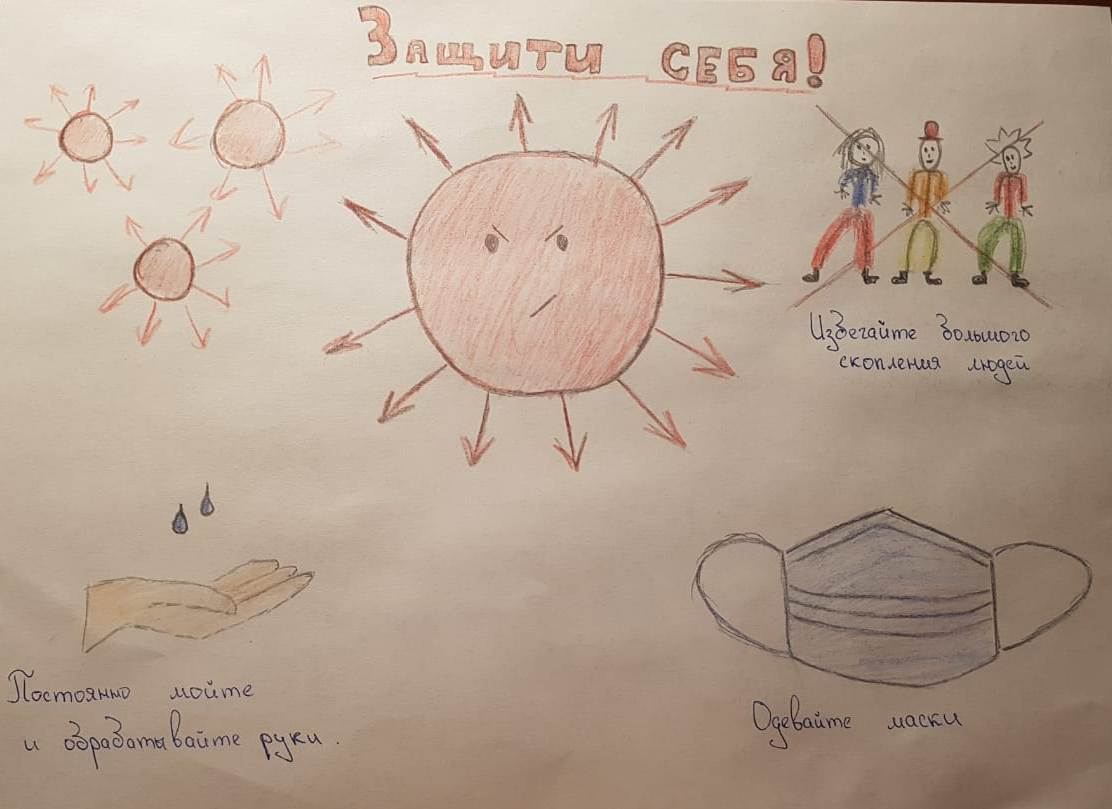 Защити себя!
Избегайте большого
скопления людей
Постоянно мойте
и обрабатывайте руки.
Одевайте маски